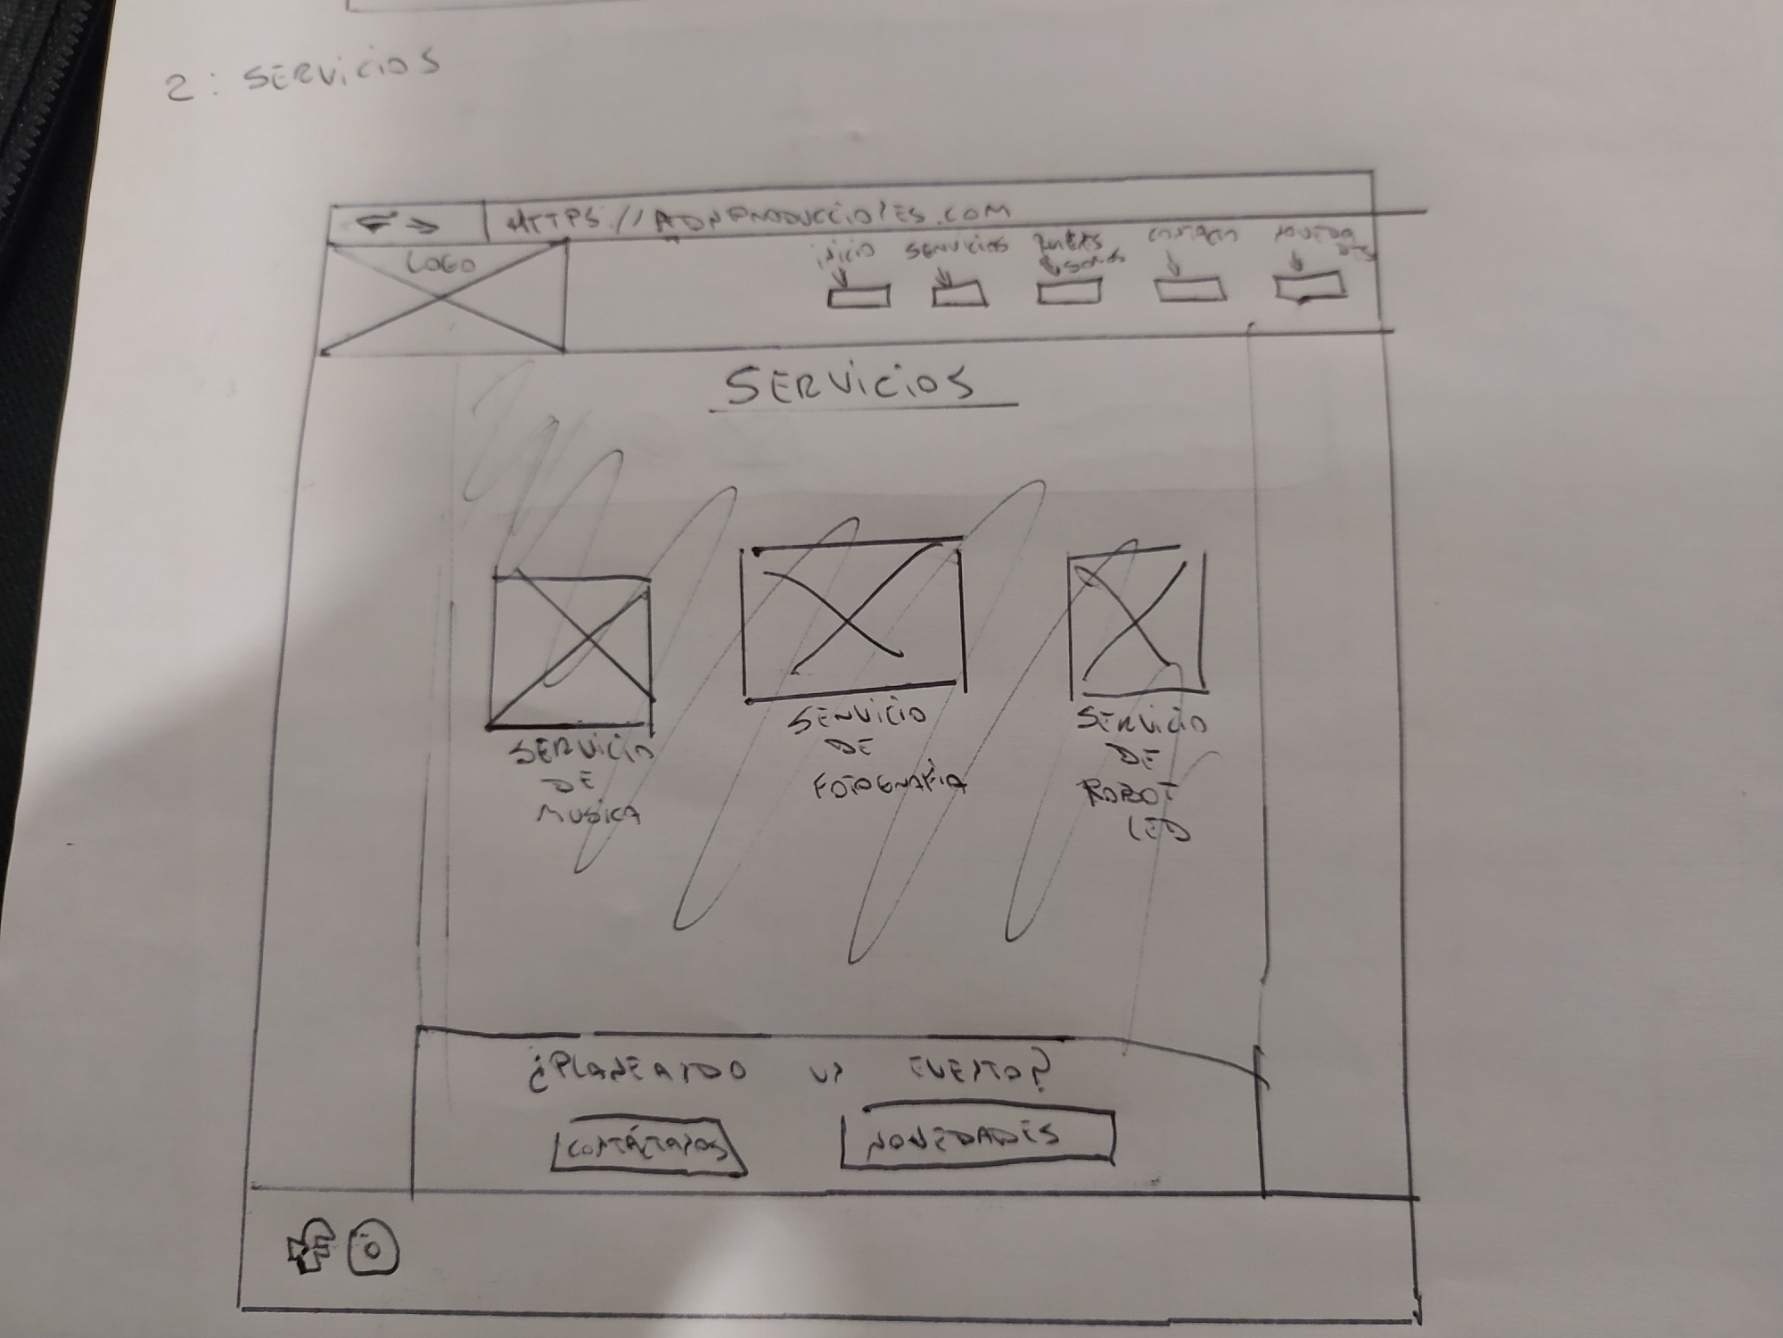 2: SERVICIOS
HTTPS://ADNPRODUCCIONES.COM
LOGO
INICIO SERVICIOS
SERVICIOS
SERVICIO
DE
MUSICA
SERVICIO
DE
FOTOGRAFIA
SERVICIO
DE
ROBOT
LED
¿PLANEANDO UN EVENTO?
CONTÁCTANOS NOVEDADES